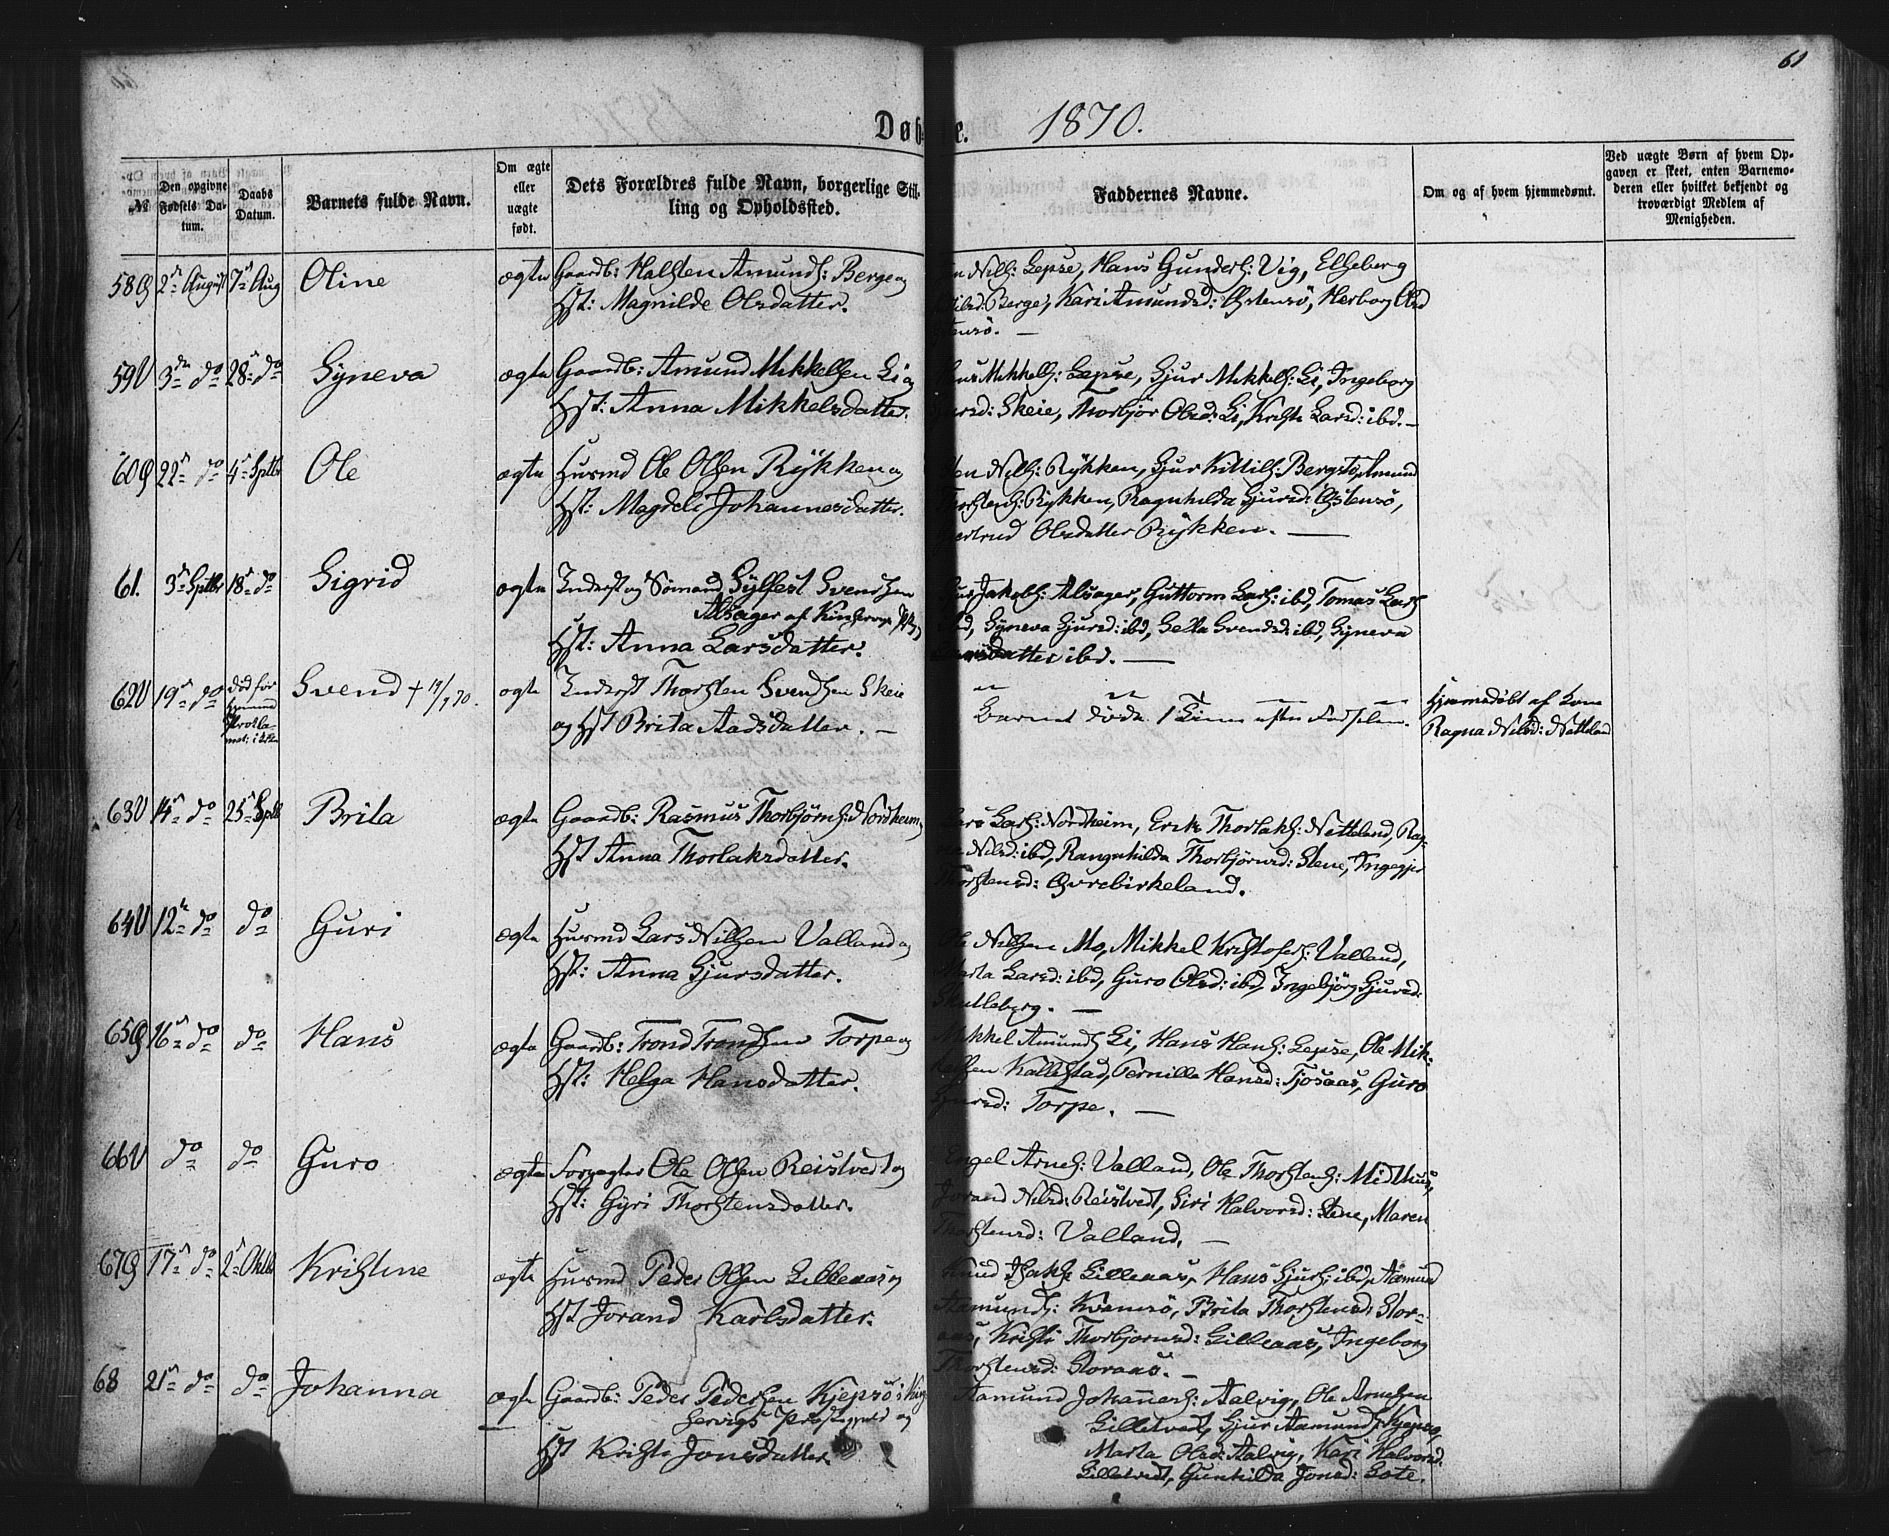 61
Døb e. 1870.
№
Den opgivne Fødsels Datum.
Daabs Datum.
Barnets fulde Navn.
Om ægte eller uægte født.
Dets Forældres fulde Navn, borgerlige Stilling og Opholdssted.
Faddernes Navne.
Om og af hvem hjemmedøbt.
Ved uægte Børn af hvem Opgaven er skeet, enten Barnemoderen eller hvilket bekjendt og troværdigt Medlem af Menigheden.
58 2 August 7 Aug Oline ægte Gaardb: Halsten Amunds: Berge og
Hst: Magnilde Olsdatter.
Nils: Lepsø, Hans Gunders: Vig, Elseberg
Berge, Kari Amundsd: Østensö, Herborg Olsd
59 3 do 28 do Syneva ægte Gaardb: Amund Mikkelsen Li og
Hst: Anna Mikkelsdatter.
Mikkels: Lepsø, Sjur Mikkels: Li, Ingeborg
Skeie, Thorbjör Olsd: Li, Kristi Larsd: ibd. —
60 22 do 4 Sptbr Ole ægte Husmd Ole Olsen Rykken og
Hst: Magdeli Johannesdatter.
Nils: Rykken, Sjur Kittils: Bergstø, Amund
Thorstens: Rykken, Ragnhilda Sjursd: Østensö,
Olsdatter Rykken. —
61. 3 Sptbr 18 do Sigrid ægte Inderst og Sömand Sylfest Svendsen
Alsager af Kinservig
Hst: Anna Larsdatter.
Jakobs: Alsager, Guttorm Lars: ibd, Tomas Lars
Syneva Sjursd: ibd, Sella Svendsd: ibd, Syneva
datter ibd. —
62 19 do död för Svend † 19/9 70. ægte Inderst Thorsten Svendsen Skeie
og Hst Brita Aadsdatter. —
Barnet døde 1 Time efter Fødselen.
Hjemmedöbt af Kone
Ragna Nilsd: Netteland
63 14 do 25 Sptb Brita ægte Gaardb: Rasmus Thorbjörns: Nordheim
Hst Anna Thorlaksdatter.
Lars: Nordheim, Erik Thorlaks: Netteland, Rag-
Nilsd: ibd, Rangnhilda Thorbjörnsd: Stene, Ingegjer
Thorstensd: Øvrebirkeland.
64 12 do do Guri ægte Husmd Lars Nilsen Valland og
Hst: Anna Sjursdatter.
Ole Nilsen Mo, Mikkel Kristofers: Valland,
Marta Larsd: ibd, Guro Olsd: ibd, Ingebjörg Sjursd:
Skulleberg. —
65 16 do do Hans ægte Gaardb: Trond Trondsen Torpe og
Hst: Helga Hansdatter.
Mikkel Amunds Li, Hans Hans: Lepsø, Ole Mik-
kelsen Kallestad, Pernille Hansd: Tjosaas, Guro
Sjursd: Torpe. —
66 do do Guro ægte Forpagter Ole Olsen Reistvedt og
Hst: Gyri Thorstensdatter.
Engel Arnes: Valland, Ole Thorstens: Midthus,
Jorand Nilsd: Reistvedt, Siri Halvorsd: Stene, Maren
Thorstensd: Valland. —
67 17 do 2 Oktb Kristine ægte Husmd Peder Olsen Lilleaas og
Hst Jorand Karlsdatter.
Knud Lilleaas, Hans Sjurs: ibd, Aamund
Aamunds: Kvamsö, Brita Thorstensd: Stor-
aas, Kristi Thorbjornsd: Lilleaas, Ingeborg
Thorstensd: Storaas. —
68 21 do do Johanna ægte Gaardb: Peder Pedersen Kjepsö i Kin-
servigs Præstegjeld og
Hst Kristi Jonsdatter.
Aamund Johannes: Aalvig, Ole Arnesen
Lilletvedt, Sjur Aamunds: Kjepsö,
Marta Olsd: Aalvig, Kari Halvorsd:
Lilletvedt, Gunhilda Jonsd: Lote.